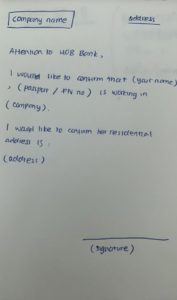 Company name
address
Attention to UOB Bank,
I would like to confirm that (your name)
, (passport / FN no) is working in
(company).
I would like to confirm her residential
address is :
(address)
(signature)